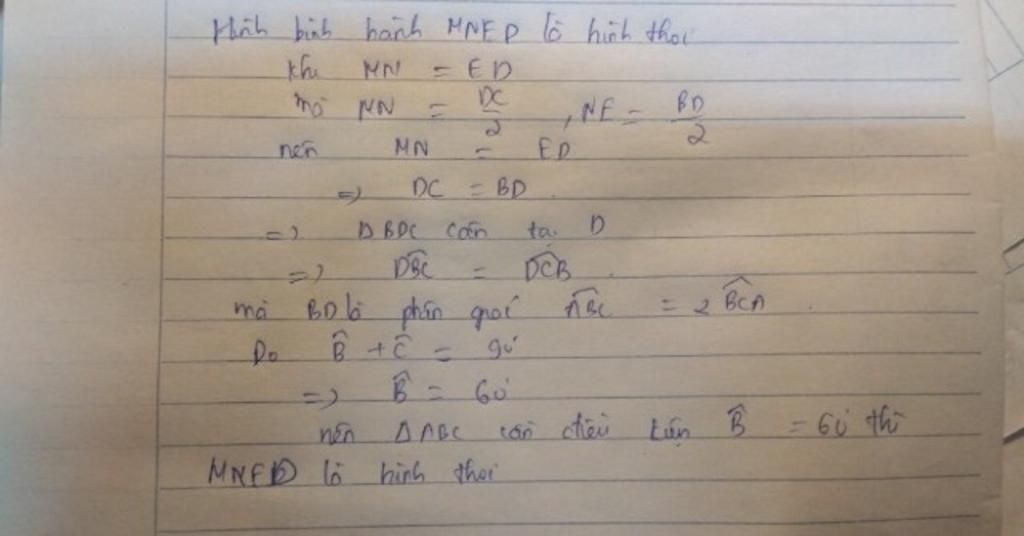 Hình bình hành MNED là hình thoi
khi MN = ED
mà MN = DC/2, NE = BD/2
nên MN = ED
=> DC = BD.
=> ΔBDC cân tại D
=> \widehat{DBC} = \widehat{DCB}.
mà BD là phân giác \widehat{ABC} = 2\widehat{BCA}.
Do \widehat{B} + \widehat{C} = 90°
=> \widehat{B} = 60°
nên ΔABC cần điều kiện \widehat{B} = 60° thì
MNED là hình thoi